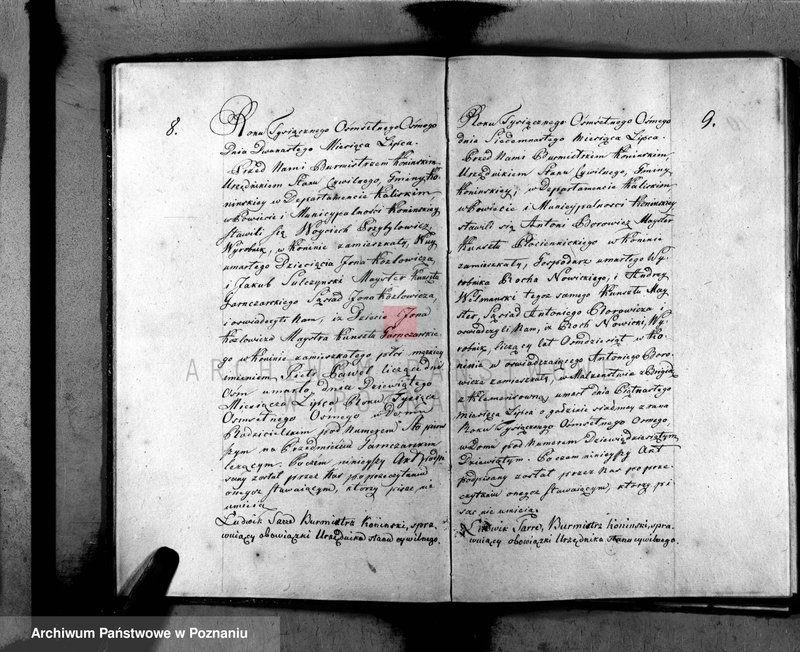 8.
Roku Tysiącznego Ośmsetnego Osmego
Dnia Dwunastego Miesiąca Lipca.
Przed Nami Burmistrzem Konińskim
Urzędnikiem Stanu Cywilnego, Gminy Ko-
nińskiey w Departamencie Kaliskim,
w Powiecie i Municypalności Konińskiey,
stawili się Woyciech Przybyłowicz,
Wyrobnik, w Koninie zamieszkały, Wuy
umarłego Dziecięcia Jona Kozłowicza,
i Jakub Sulczynski Mayster Kunsztu
Garncarskiego Sąsiad Jona Kozłowicza,
i oswiadczyli Nam, iz Dziecie Jona
Kozłowicza Maystra Kunsztu Garncarskie-
go w Koninie zamieszkałego płci męzkiey
imieniem Piotr Paweł liczące dni
Ośm umarło dnia Dziewiątego
Miesiąca Lipca Roku Tysiąca
Osmsetnego Osmego w Domu
Rodzicielskim pod Numerem Sto pierw
szym na Przedmieściu Garncarskim
leżącym. Poczém ninieyszy Akt podpi-
sany został przez Nas po przeczytaniu
onegoż stawaiącym, którzy pisac nie
umieią
Ludwik Sarre Burmistrz Koninski, spra-
wuiący obowiązki Urzędnika stanu cywilnego.
9.
Roku Tysiącznego Osmsetnego Osmego
dnia Siedemnastego miesiąca Lipca.
Przed Nami Burmistrzem Koninskim
Urzędnikiem Stanu Cywilnego, Gminy
Koninskiey, w Departamencie Kaliskim
w Powiecie i Municypalności Koninskiey
stawili się Antoni Borowicz Mayster
Kunsztu Płocienniczkiego w Koninie
zamieszkały, Gospodarz umarłego Wy-
robnika Rocha Nowickiego, i Andrzey
tegoz samego Kunsztu May-
ster, Sąsiad Antoniego Borowicza i
oswiadczyli Nam, iz Roch Nowicki, Wy-
robnik, liczący lat Osmdziesiąt w Ko-
ninie u oswiadczaiącego Antoniego Boro-
wicza zamieszkały, w Małzenstwie z
umarł dnia Piętnastego
miesiąca Lipca o godzinie siodmey z rana
Roku Tysiącznego Osmsetnego Osmego,
w Domu pod Numerem Dziewiędziesiątym
Dziewiątym. Poczem ninieyszy Akt
podpisany został przez Nas po prze-
czytaniu onegoz stawaiącym, którzy pi-
sać nie umieią.
Ludwik Sarre, Burmistrz Koninski, spra-
wuiący obowiązki Urzędnika stanu cywilnego.
Archiwum Państwowe w Poznaniu